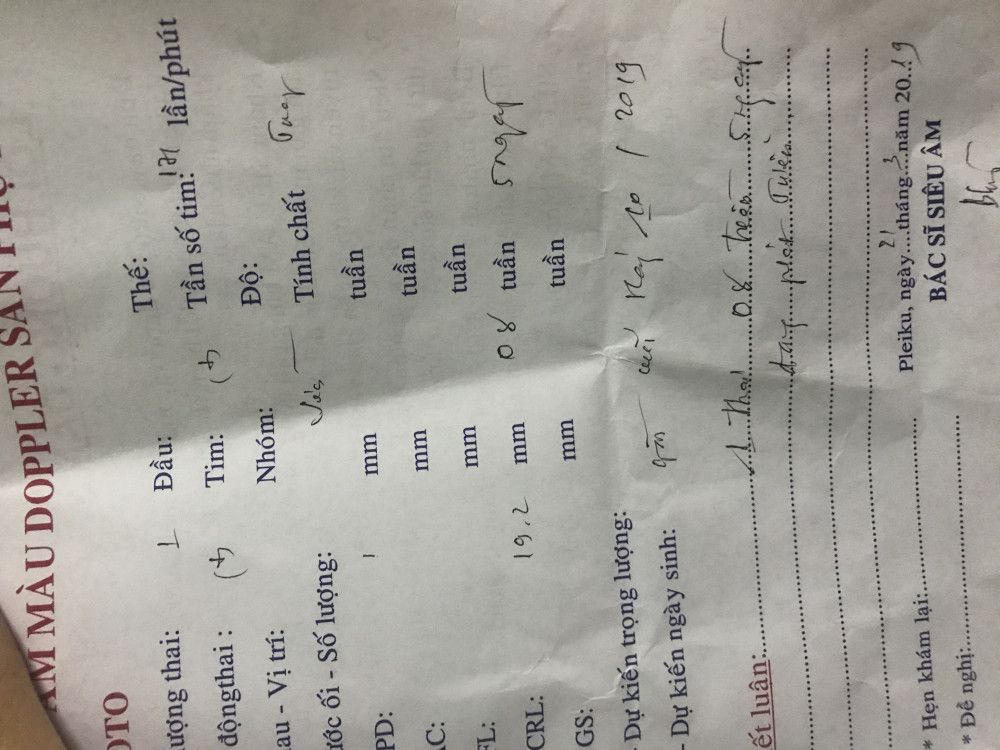 ÂM MÀU DOPPLER SẢN PHỤ
OTO
ượng thai: 1 Đầu: Thế:
độngthai : (+) Tim: (+) Tần số tim: 171 lần/phút
au - Vị trí: Nhóm: Độ:
ước ối - Số lượng: Tính chất Trong
PD: mm tuần
AC: mm tuần
FL: mm tuần
CRL: 19.2 mm 08 tuần 5 ngày
GS: mm tuần
- Dự kiến trọng lượng:
- Dự kiến ngày sinh: cuối 10 / 2019
ết luận: 1 Thai 08 tuần 5 ngày
đang phát triển
Pleiku, ngày 21 tháng 3 năm 2019
* Hẹn khám lại: BÁC SĨ SIÊU ÂM
* Đề nghị: